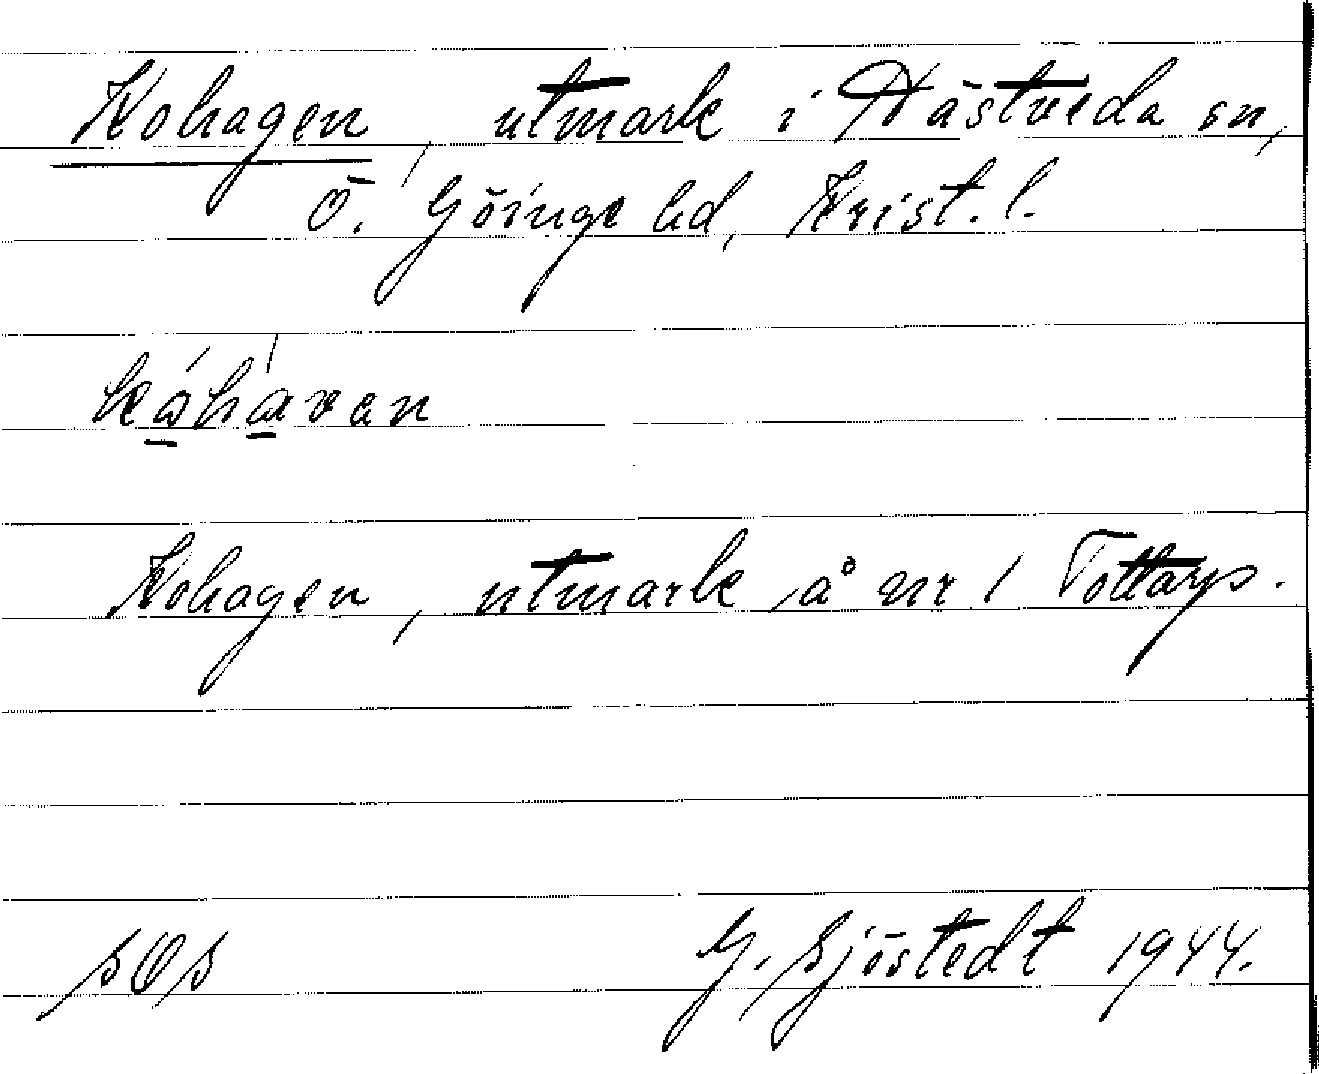 Kohagen, utmark i Hästveda sn,
Ö. Göinge hd, Krist. l.
kåhavan
Kohagen, utmark å nr 1 Tottarp.
G. Sjöstedt 1944.